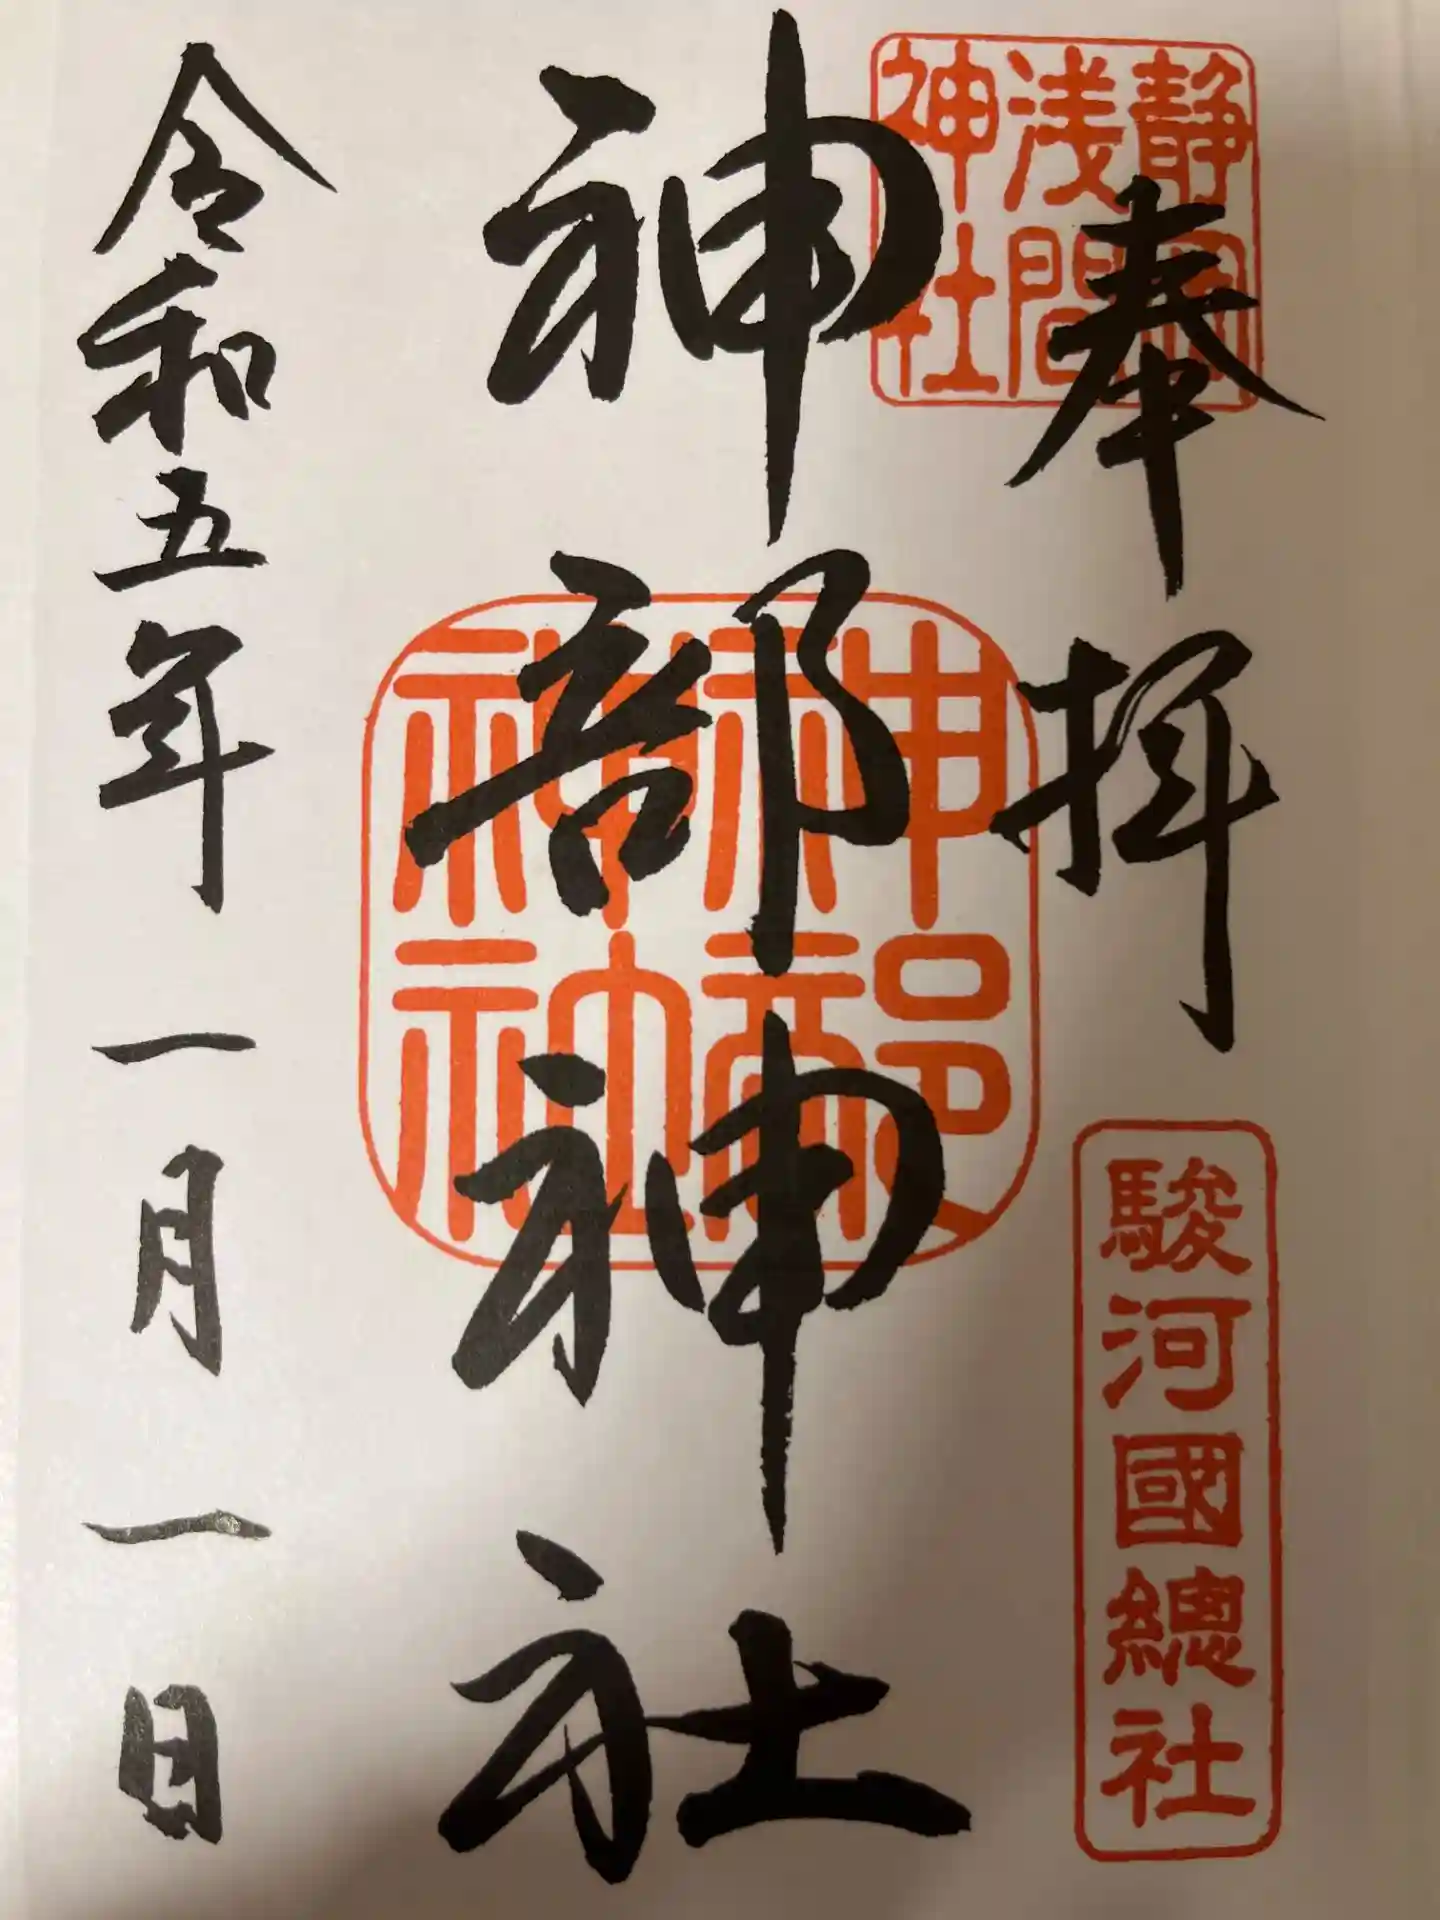 奉拝
静岡
浅間
神社
駿河國總社
神部神社
神部
神社
令和五年一月一日